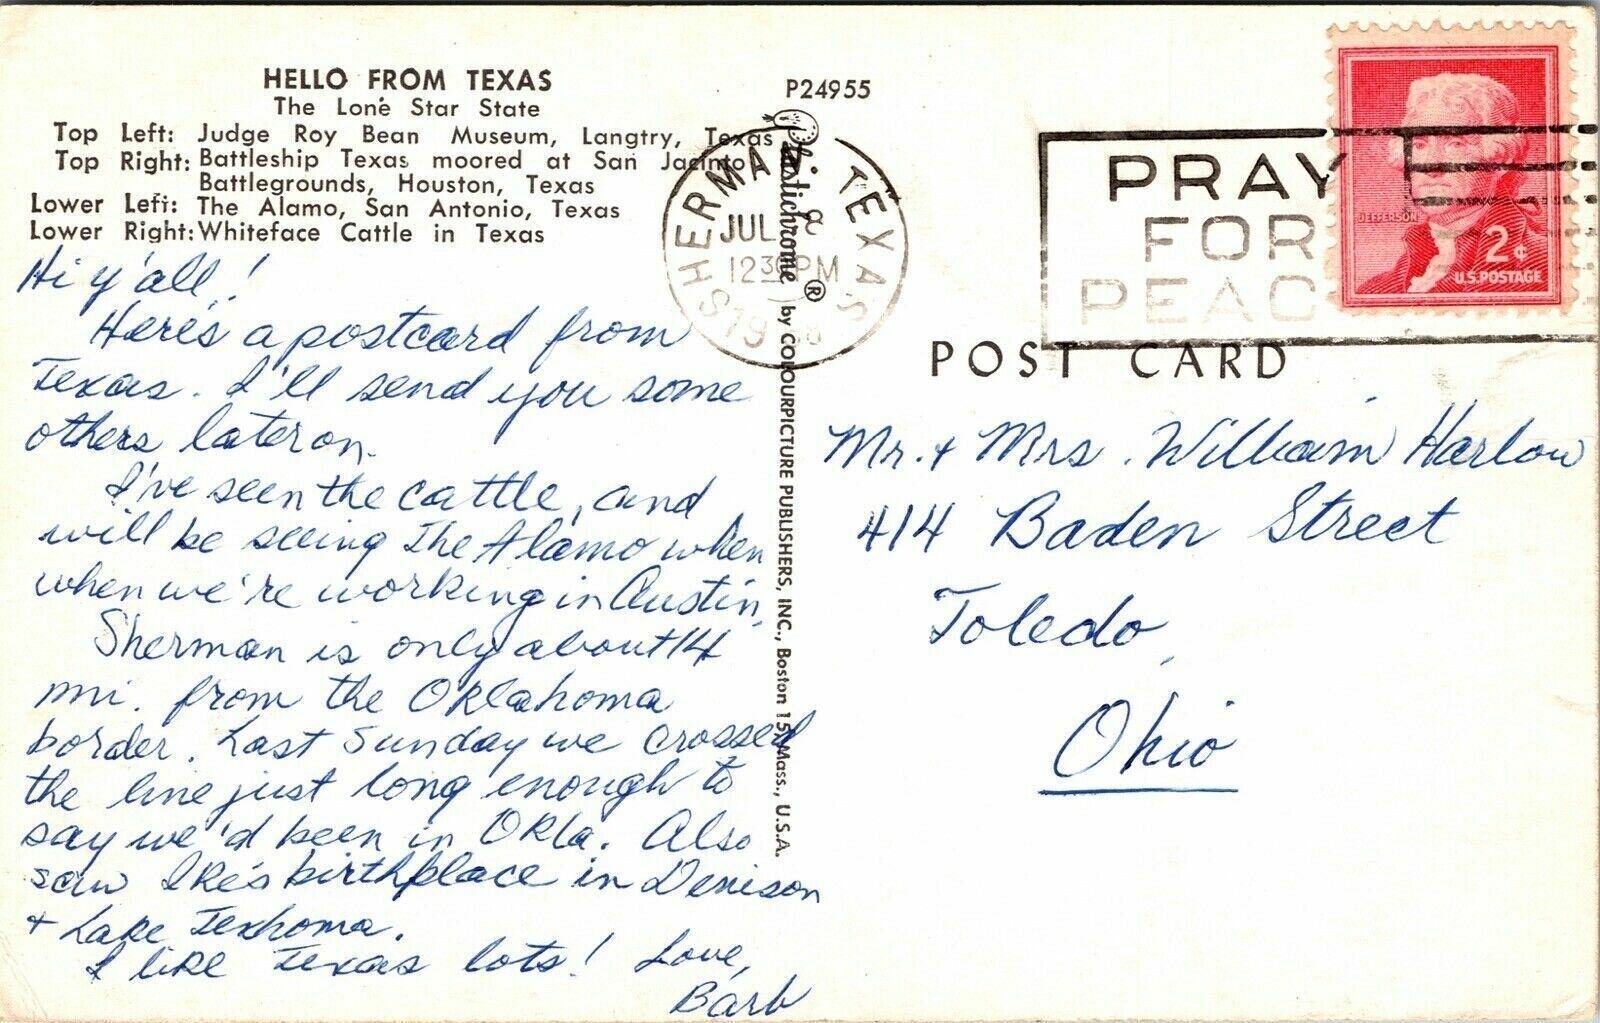 HELLO FROM TEXAS
The Lone Star State
Top Left: Judge Roy Bean Museum, Langtry, Texas
Top Right: Battleship Texas moored at San Jacinto
Battlegrounds, Houston, Texas
Lower Left: The Alamo, San Antonio, Texas
Lower Right: Whiteface Cattle in Texas
Hi y'all!
Here's a postcard from
Texas. I'll send you some
others later on.
I've seen the cattle, and
will be seeing The Alamo when
when we're working in Austin.
Sherman is only about 14
mi. from the Oklahoma
border. Last Sunday we crossed
the line just long enough to
say we'd been in Okla. Also
saw Ike's birthplace in Denison
+ Lake Texhoma.
I like Texas lots! Love,
Barb
P24955
Plastichrome ® by COLOURPICTURE PUBLISHERS, INC., Boston 15, Mass., U.S.A.
SHERMAN TEXAS
JUL
12 30 PM
19
PRAY
FOR
PEAC
JEFFERSON
2¢
U.S. POSTAGE
POST CARD
Mr. + Mrs. William Harlow
414 Baden Street
Toledo,
Ohio